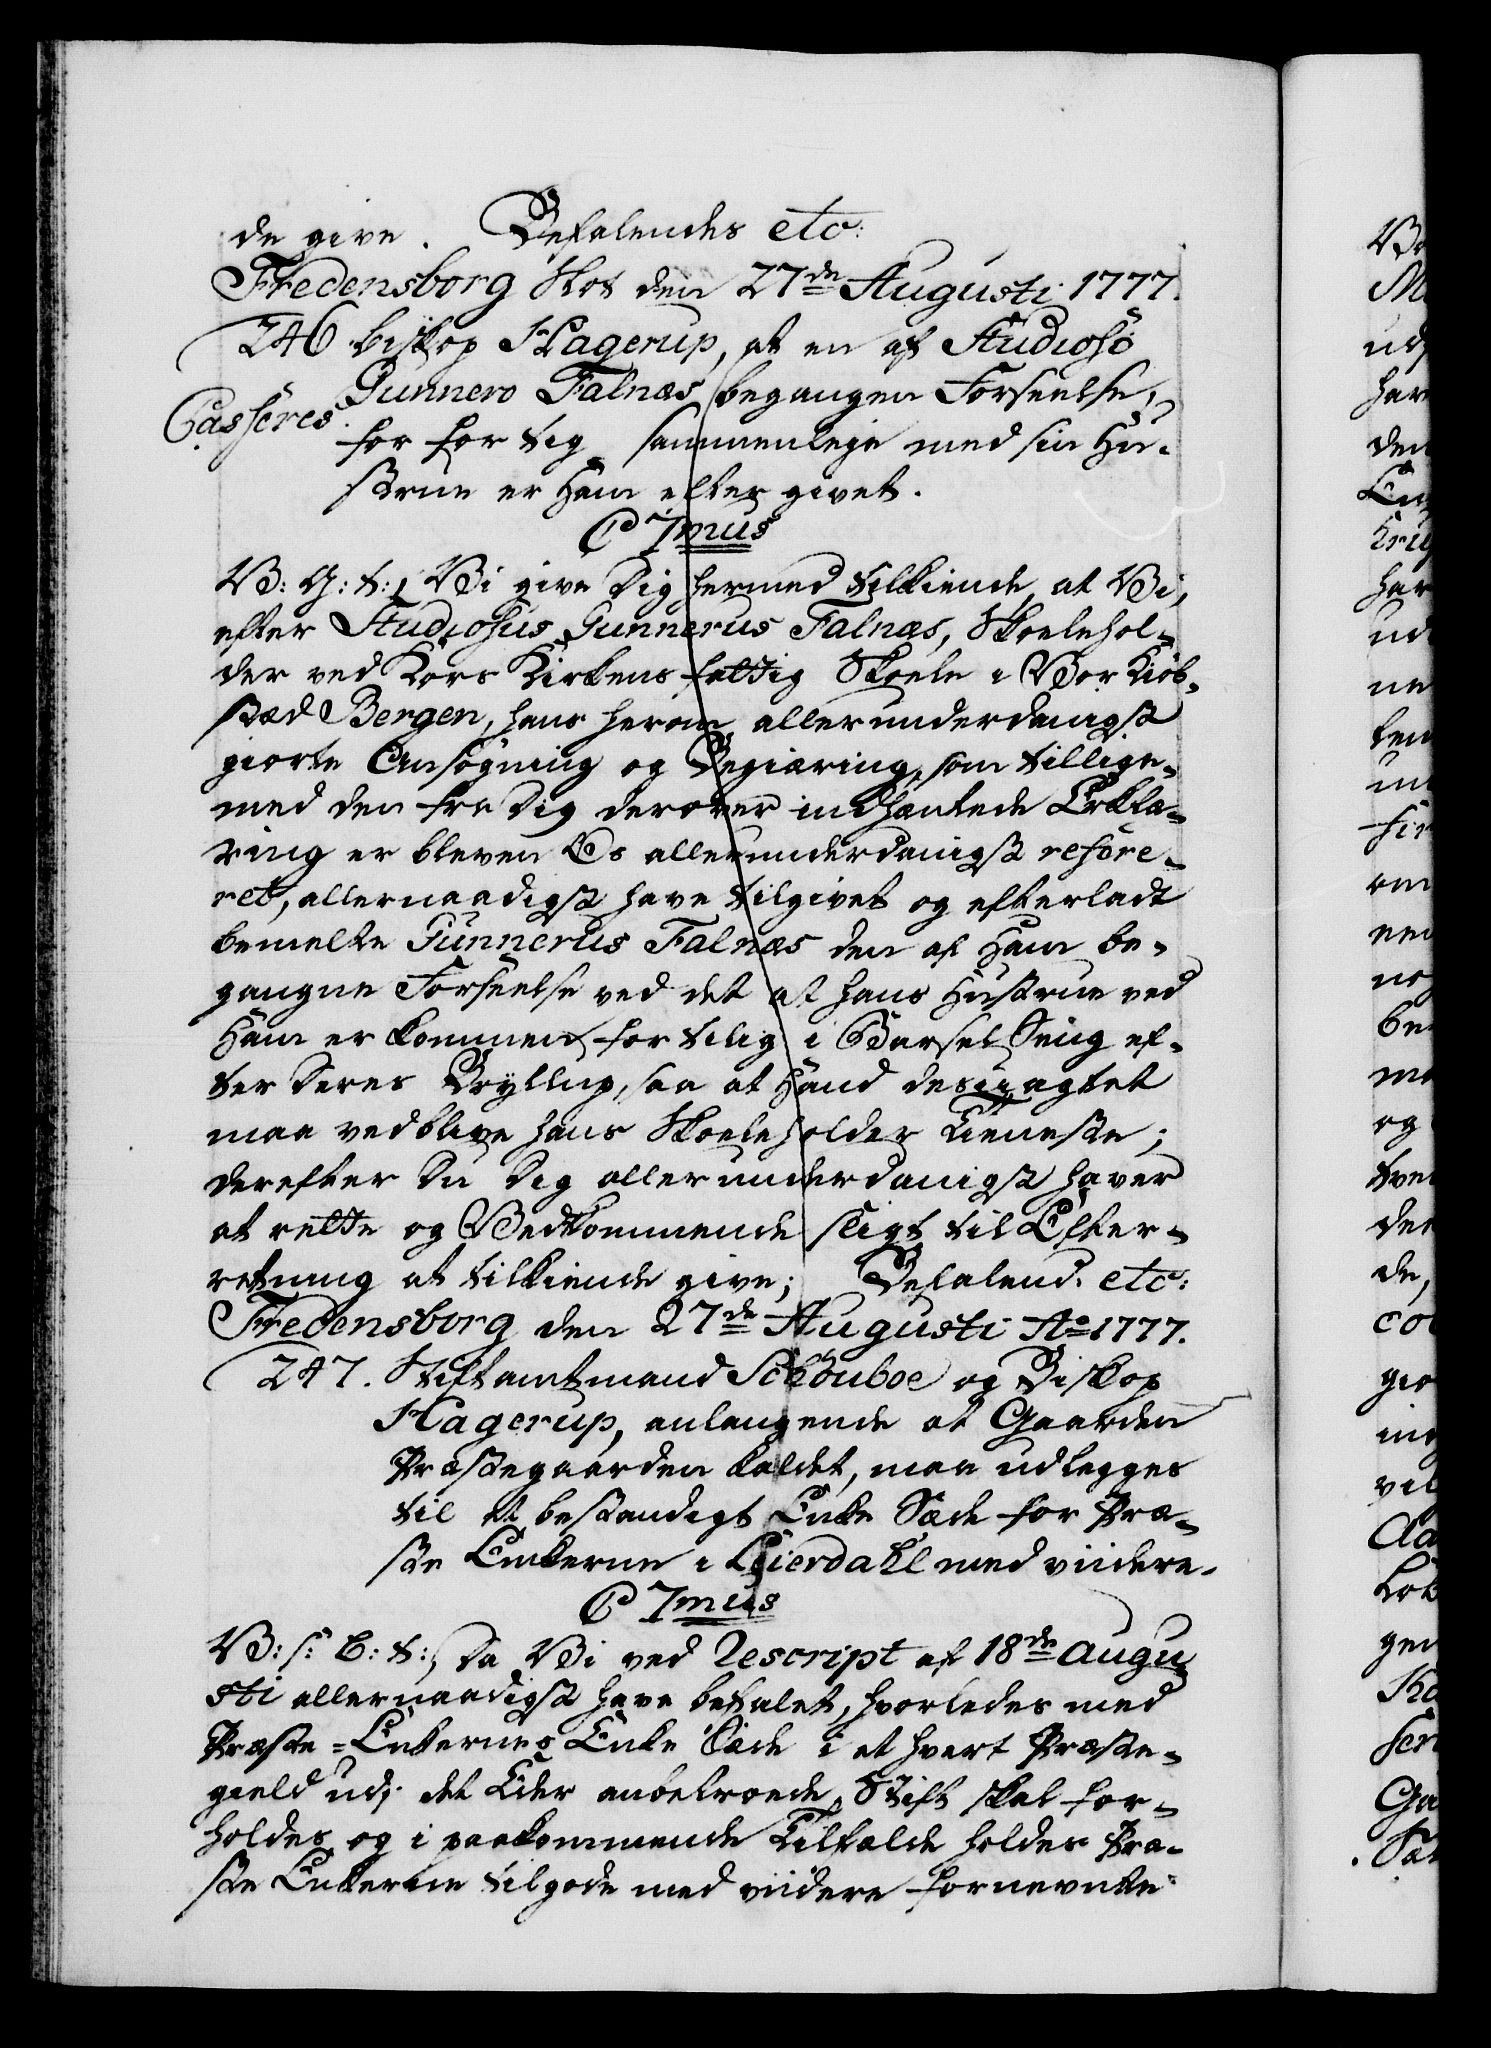 de give. Befalendes etc:
Fredensborg Slot den 27de Augusti 1777.
246 biskop Hagerup, at en af Studioso
Gunnero Falnæs begangen Forseelse,
Casseres.
for for tiig sammenleje med sin Hu-
strue er Ham efter givet.
C 7mus
V: G: t:, Vi give Dig hermed tilkiende, at Vi,
efter Studiosus Gunnerus Falnæs, Skoelehol-
der ved Kors Kirkens fattig Skoele i Vor Kiöb-
stæd Bergen, hans herom allerunderdanigst
giorte Ansøgning og Begiæring, som tillige-
med den fra Dig derover indhæntede Erklæ-
ring er bleven Os allerunderdanigst refere-
ret, allernaadigst have tilgivet og efterladt
bemelte Gunnerus Falnæs den af Ham be-
gangne Forseelse ved det at hans Hustrue ved
Ham er kommen for tilig i Barsel Seng ef-
ter deres Bryllup, saa at Hand desuagtet
maa vedblive hans Skoeleholder Tieneste;
derefter Du Dig allerunderdanigst haver
at rette og Vedkommende sligt til Efter-
retning at tilkiende give; Befalend. etc:
Fredensborg den 27de Augusti Ao 1777.
247. Stiftamtmand Schouboe og Biskop
Hagerup, anlangende at Gaarden
Præstegaarden kaldet, maa udlegges
til et bestandigt Enke Sæde for Præ-
ste Enkerne i Leierdahl med viidere.
C 7mus
V: s: B: t:, Da Vi ved Rescript af 18de Augu
sti allernaadigst have befalet, hvorledes med
Præste-Enkernes Enke Sæde i et hvert Præste-
gield udj det Eder anbetroede Stift skal for-
holdes og i paakommende Tilfælde holdes Præ-
ste Enkerne tilgode med viidere fornevnte